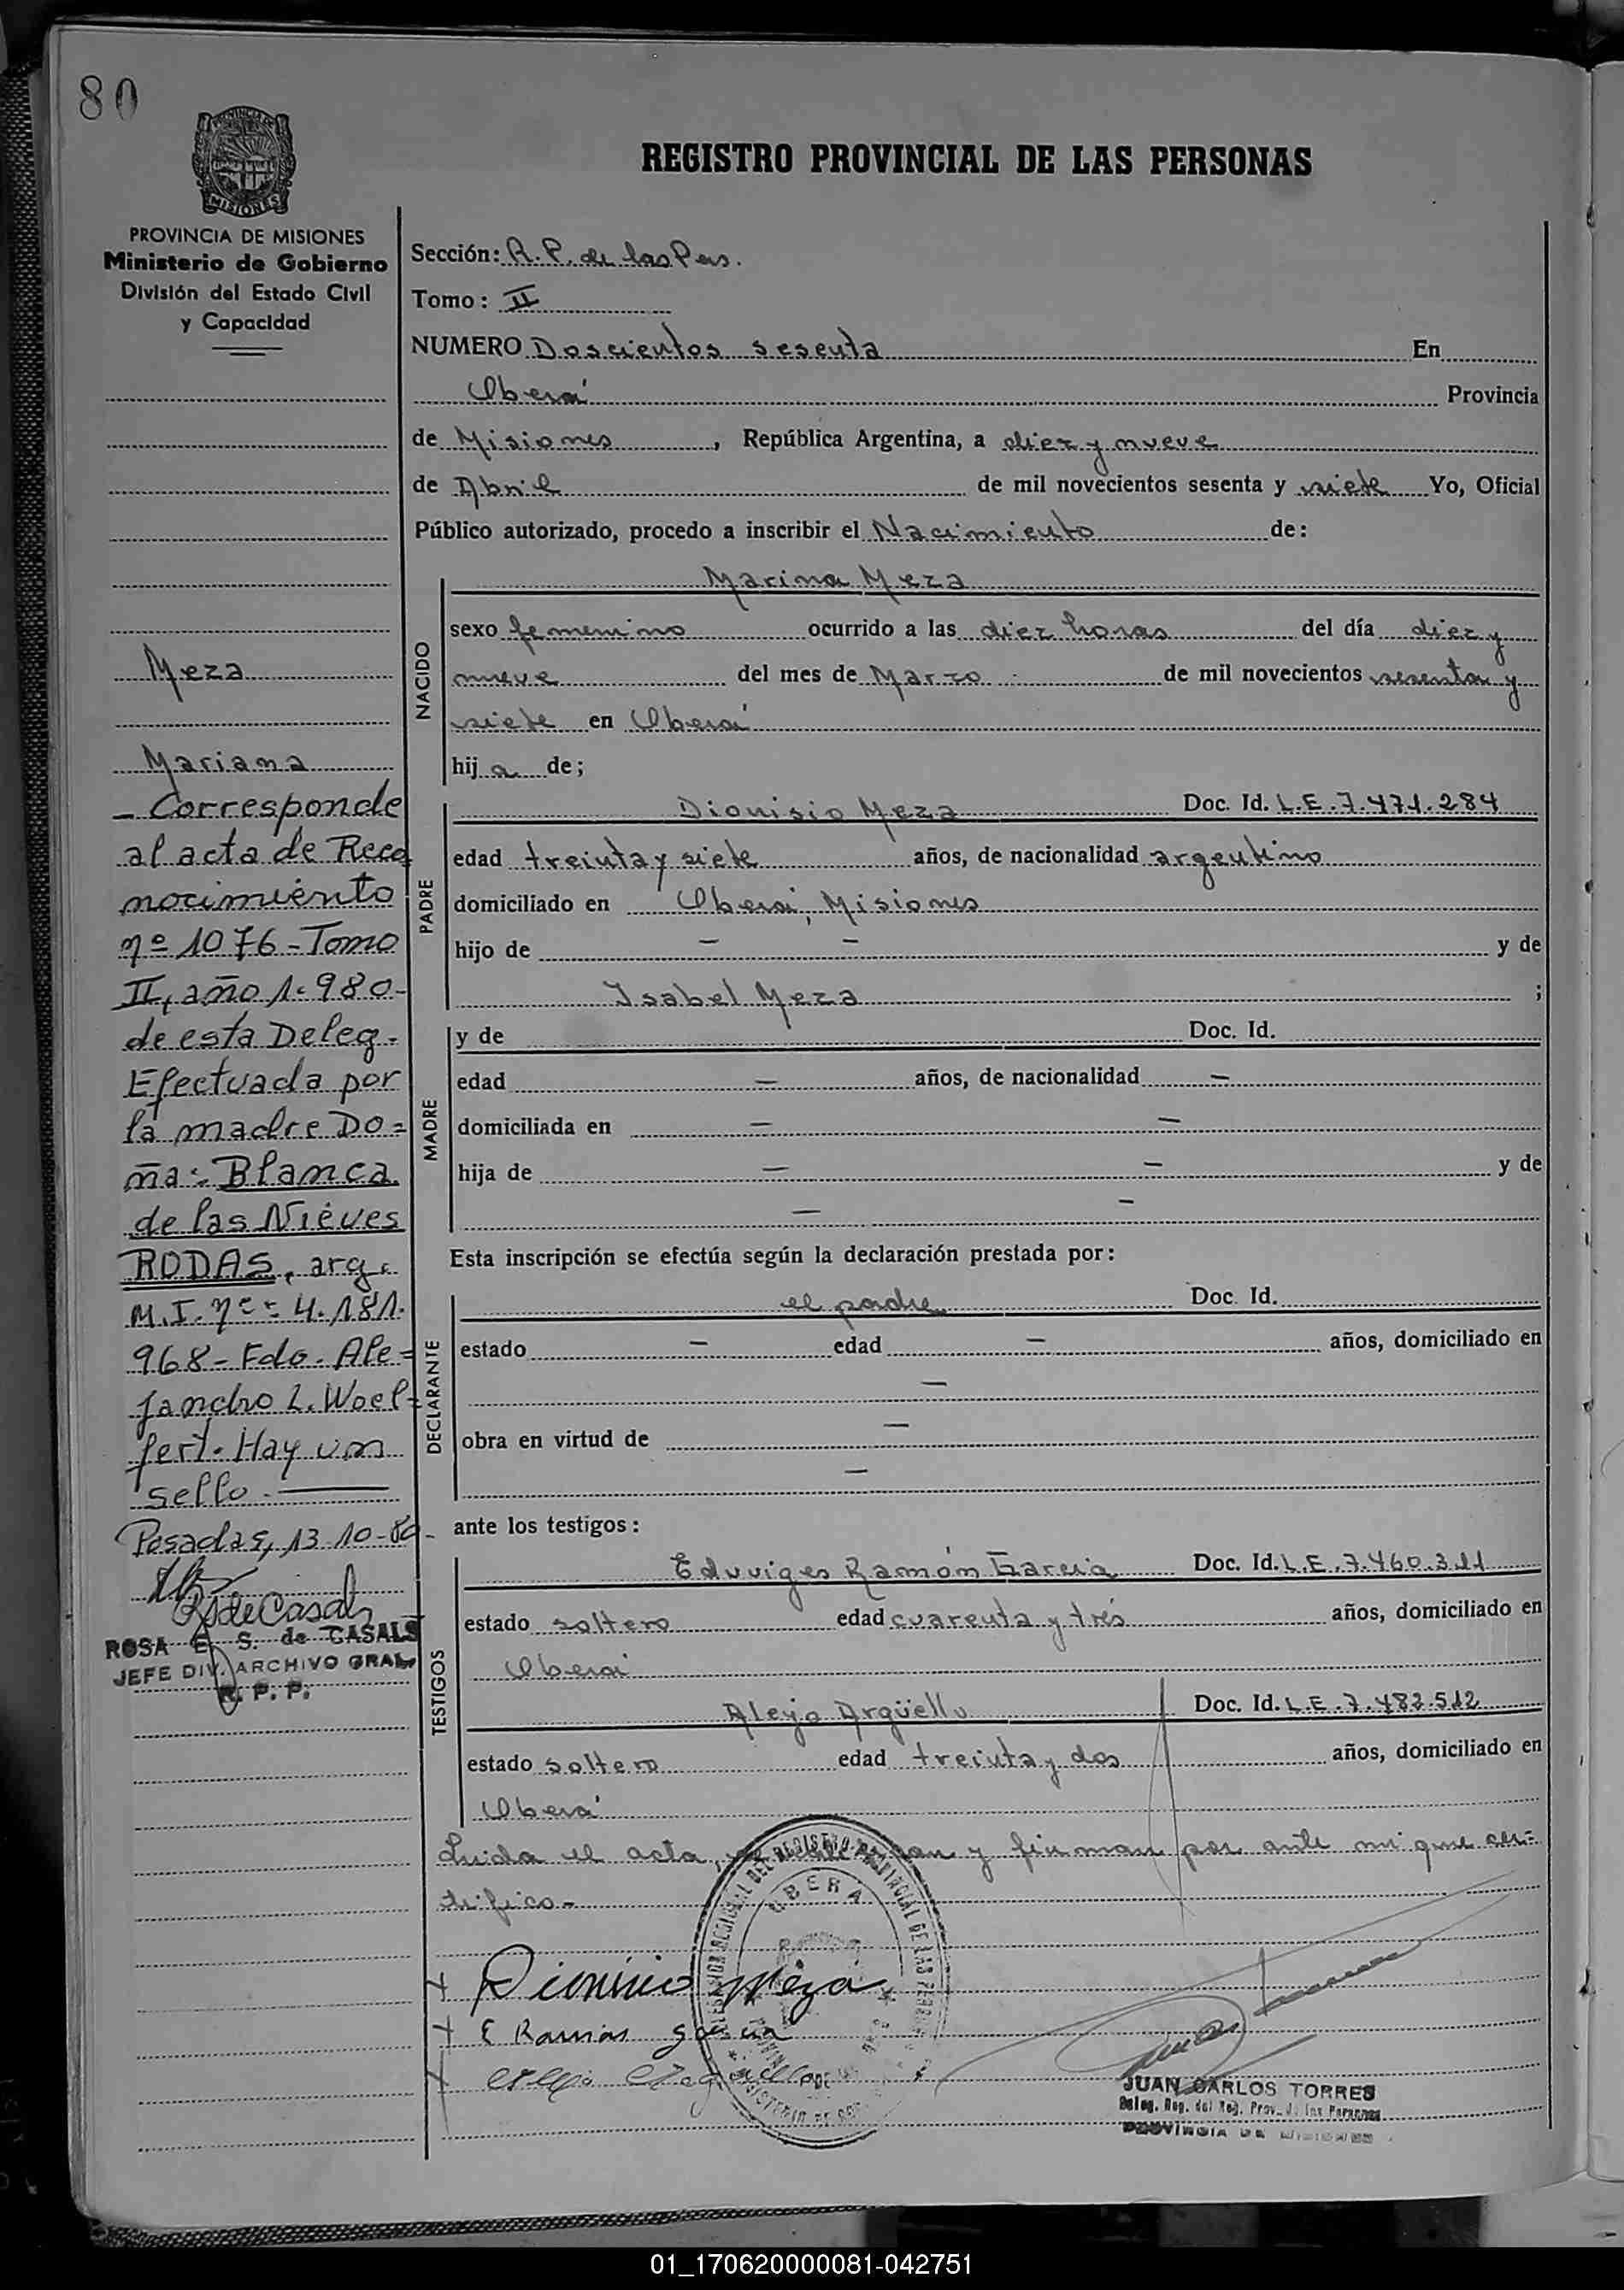 80
REGISTRO PROVINCIAL DE LAS PERSONAS
PROVINCIA DE MISIONES
Ministerio de Gobierno
División del Estado Civil
y Capacidad
Meza
Mariana
- Corresponde
al acta de Reco
nocimiento
nº 1076 - Tomo
II, año 1.980-
de esta Deleg.
Efectuada por
la madre Do=
ña: Blanca
de las Nieves
RODAS, arg.
M.I. nº = 4.181.
968 - Fdo. Ale=
jandro L. Woel=
fert. Hay un
sello.
Posadas, 13-10-80-
RSdeCasals
ROSA E. S. de CASALS
JEFE DIV. ARCHIVO GRAL.
R. P. P.
Sección: R.P. de las Pers.
Tomo: II
NUMERO Doscientos sesenta En
Oberá Provincia
de Misiones, República Argentina, a diez y nueve
de Abril de mil novecientos sesenta y siete Yo, Oficial
Público autorizado, procedo a inscribir el Nacimiento de:
NACIDO
Marina Meza
sexo femenino ocurrido a las diez horas del día diez y
nueve del mes de Marzo de mil novecientos sesenta y
siete en Oberá
hij a de;
PADRE
Dionisio Meza Doc. Id. L.E. 7.471.284
edad treinta y siete años, de nacionalidad argentino
domiciliado en Oberá, Misiones
hijo de - - y de
Isabel Meza ;
MADRE
y de Doc. Id.
edad - años, de nacionalidad -
domiciliada en - -
hija de - - y de
- -
Esta inscripción se efectúa según la declaración prestada por:
DECLARANTE
el padre Doc. Id.
estado - edad - años, domiciliado en
-
obra en virtud de -
-
ante los testigos:
TESTIGOS
Eduviges Ramón García Doc. Id. L.E. 7.460.311
estado soltero edad cuarenta y trés años, domiciliado en
Oberá
Alejo Argüello Doc. Id. L.E. 7.482.512
estado soltero edad treinta y dos años, domiciliado en
Oberá
Leida el acta, y firman por ante mi que cer=
tifico-
OBERA
+ Dionisio Meza
+ E Ramón García
+ Alejo Argüello
JUAN CARLOS TORRES
Deleg. Reg. del Reg. Prov. de las Personas
PROVINCIA DE MISIONES
01_170620000081-042751